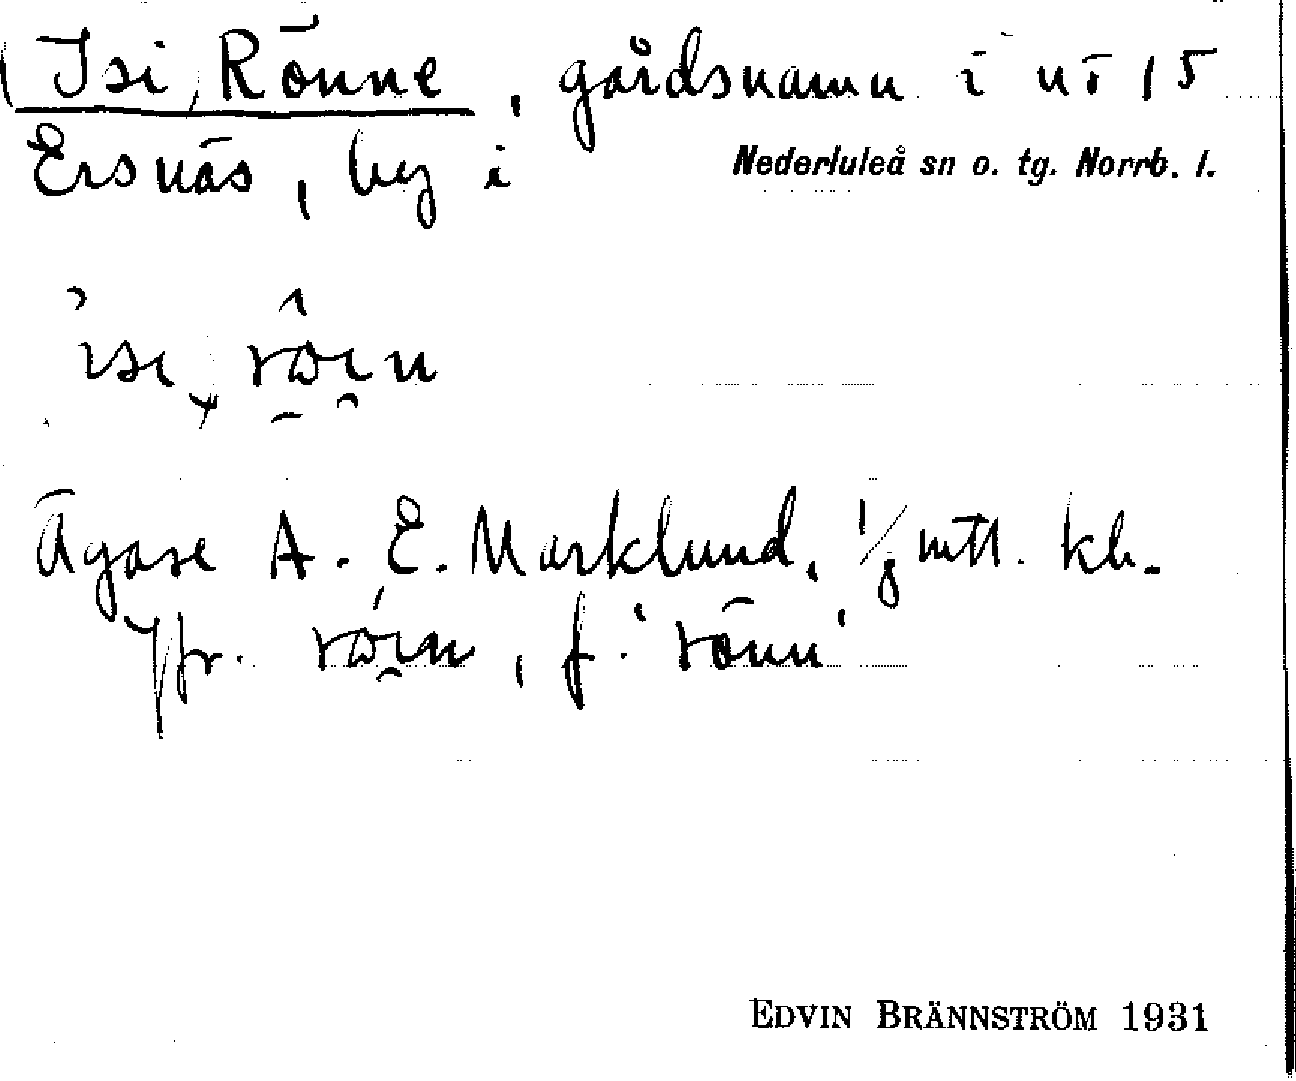 Isi Rönne, gårdsnamn i nr 15
Ersnäs, by i Nederluleå sn o. tg. Norrb. l.
Ägare A. E. Marklund, 1/8 mtl. kb.
Jfr. , f. 'rönn'
EDVIN BRÄNNSTRÖM 1931